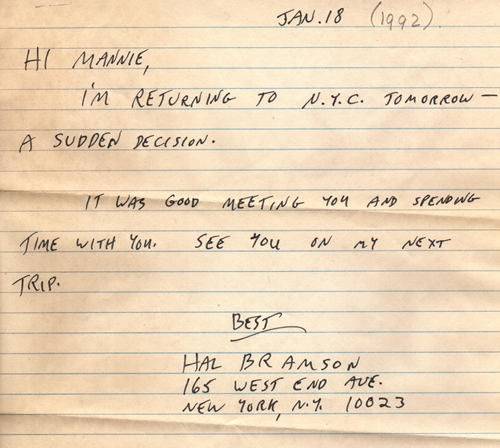 JAN. 18 (1992)
HI MANNIE,
I'M RETURNING TO N.Y.C. TOMORROW —
A SUDDEN DECISION.
IT WAS GOOD MEETING YOU AND SPENDING
TIME WITH YOU. SEE YOU ON MY NEXT
TRIP.
BEST
HAL BRAMSON
165 WEST END AVE.
NEW YORK, N.Y. 10023